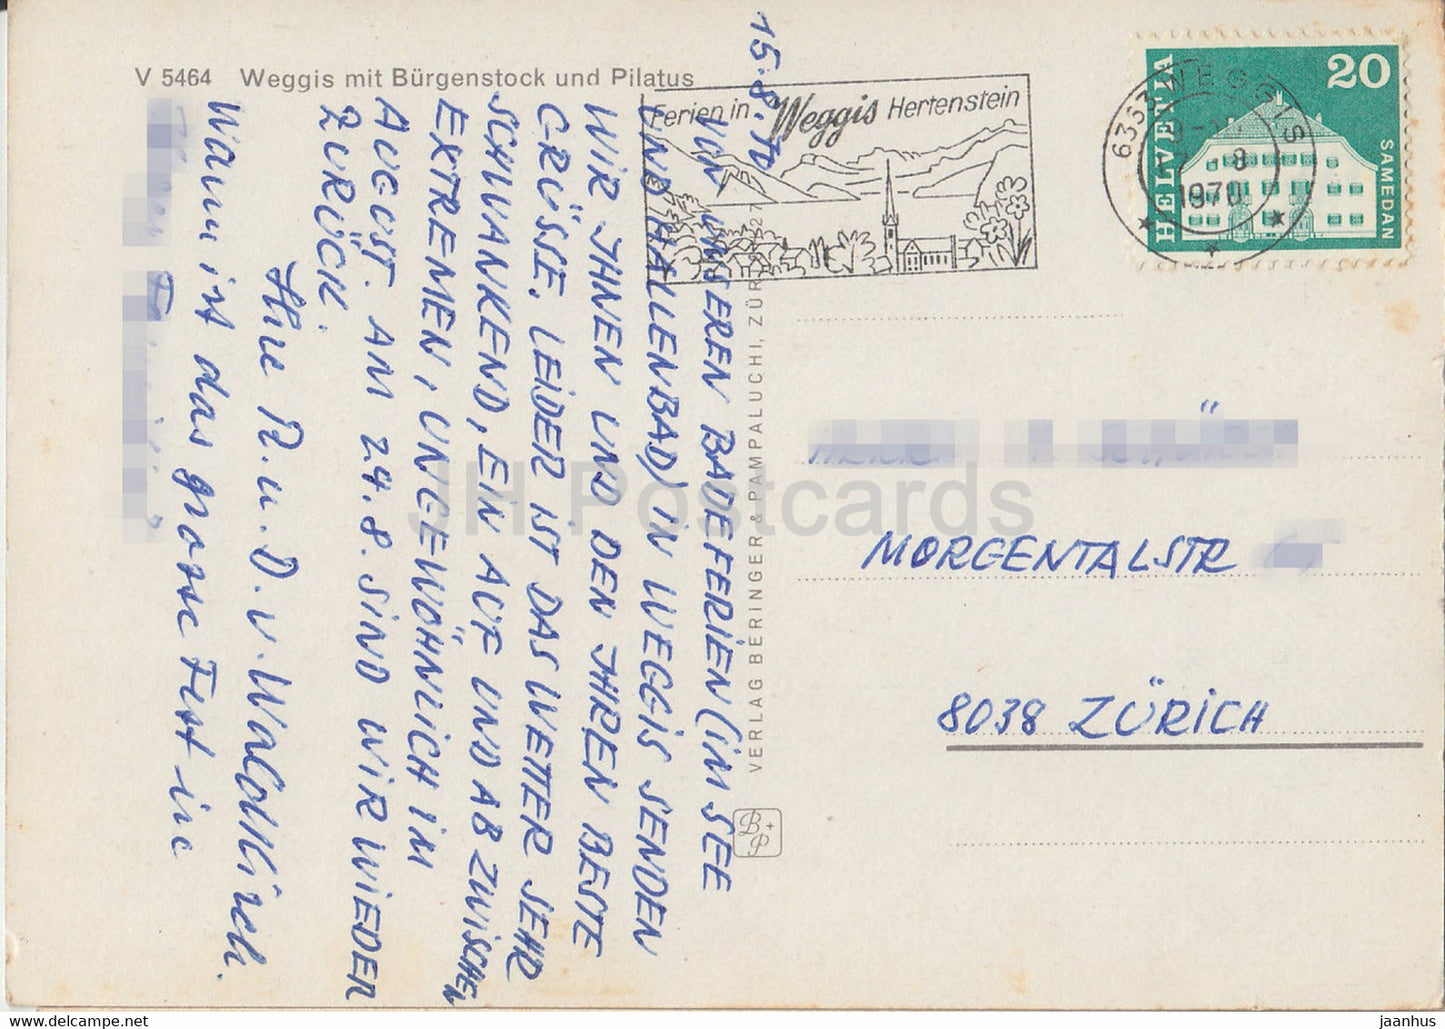 V 5464 Weggis mit Bürgenstock und Pilatus
15.8.70
VON UNSEREN BADEFERIEN (IM SEE
UND HALLENBAD) IN WEGGIS SENDEN
WIR IHNEN UND DEN IHREN BESTE
GRÜSSE. LEIDER IST DAS WETTER SEHR
SCHWANKEND, EIN AUF UND AB ZWISCHEN
EXTREMEN, UNGEWÖHNLICH IM
AUGUST. AM 24.8. SIND WIR WIEDER
ZURÜCK.
Ihre R. u. D. v. Waldkirch.
Wann ist das grosse Fest in
VERLAG BERINGER & PAMPALUCHI, ZÜR
B+P
Ferien in Weggis Hertenstein
6353 WEGGIS
1970
HELVETIA
20
SAMEDAN
HERRN
MORGENTALSTR
8038 ZÜRICH
JH Postcards
www.delcampe.net
jaanhus